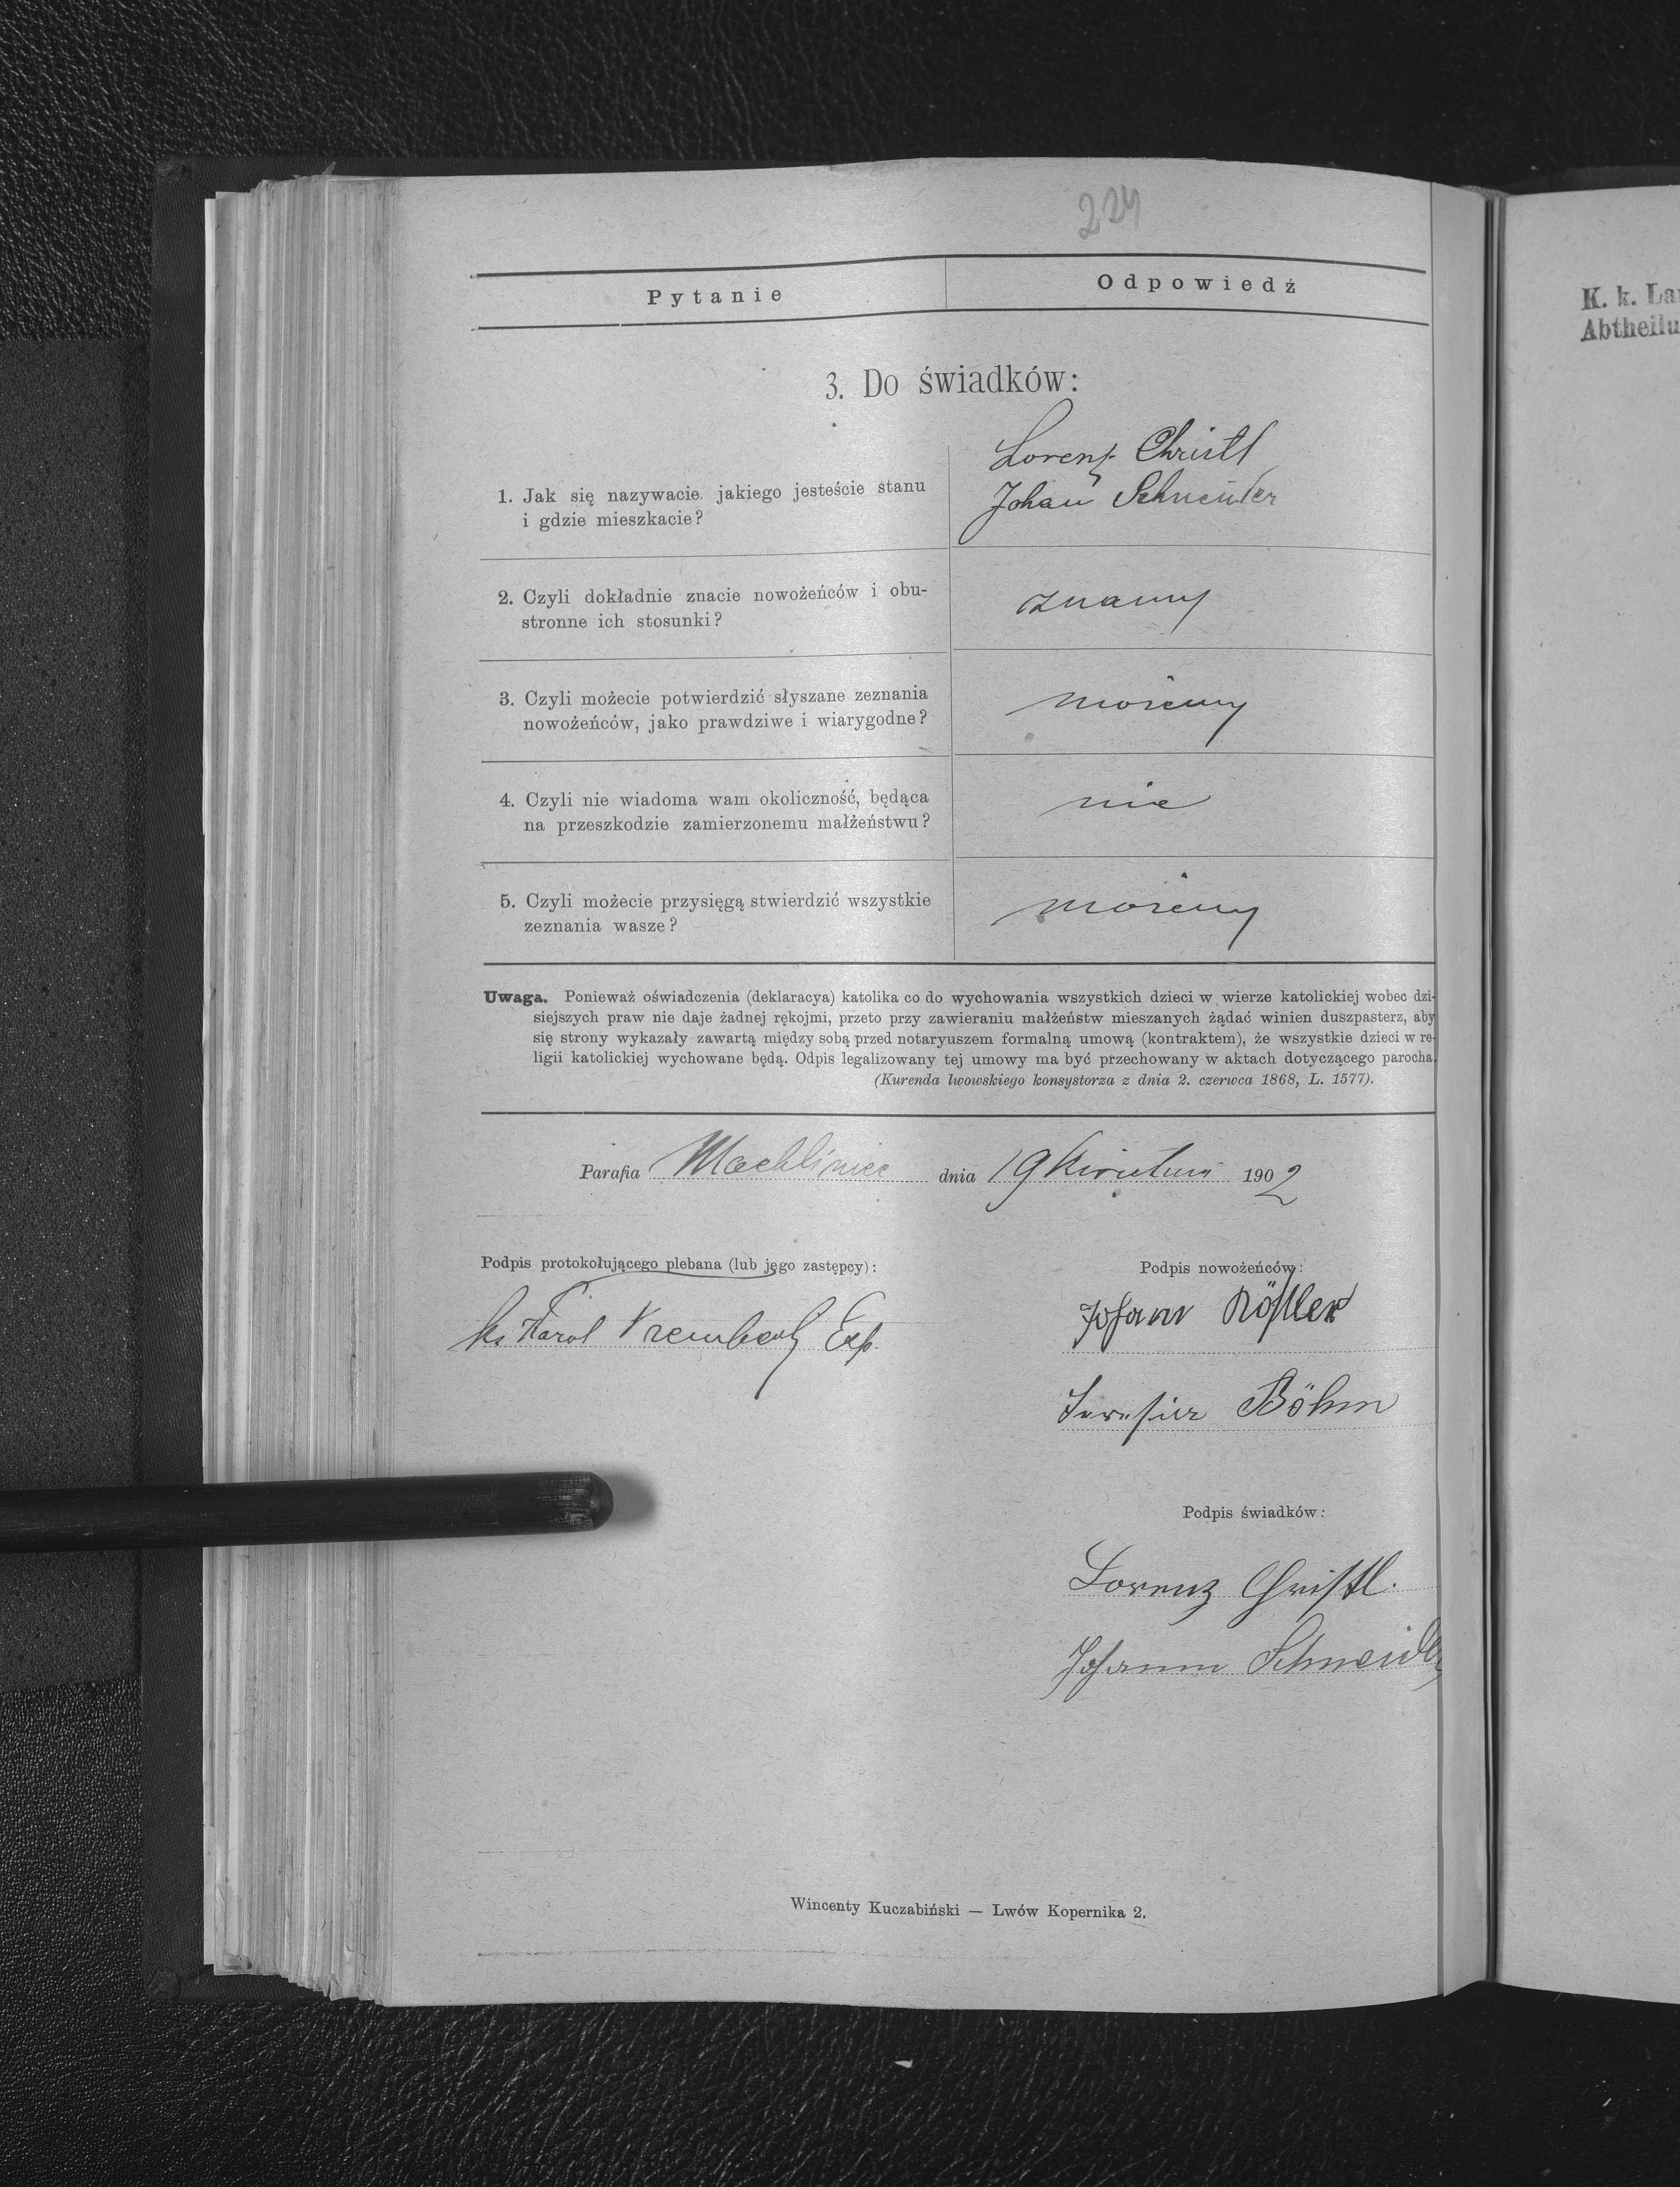 224
Pytanie
Odpowiedź
3. Do świadków:
Lorenz Christl
Johan Schneider
1. Jak się nazywacie, jakiego jesteście stanu
i gdzie mieszkacie?
2. Czyli dokładnie znacie nowożeńców i obu-
stronne ich stosunki?
znamy
3. Czyli możecie potwierdzić słyszane zeznania
nowożeńców, jako prawdziwe i wiarygodne?
możemy
4. Czyli nie wiadoma wam okoliczność, będąca
na przeszkodzie zamierzonemu małżeństwu?
nie
5. Czyli możecie przysięgą stwierdzić wszystkie
zeznania wasze?
możemy
Uwaga. Ponieważ oświadczenia (deklaracya) katolika co do wychowania wszystkich dzieci w wierze katolickiej wobec dzi-
siejszych praw nie daje żadnej rękojmi, przeto przy zawieraniu małżeństw mieszanych żądać winien duszpasterz, aby
się strony wykazały zawartą między sobą przed notaryuszem formalną umową (kontraktem), że wszystkie dzieci w re-
ligii katolickiej wychowane będą. Odpis legalizowany tej umowy ma być przechowany w aktach dotyczącego parocha.
(Kurenda lwowskiego konsystorza z dnia 2. czerwca 1868, L. 1577).
Parafia Machliniec dnia 19 Kwietnia 1902
Podpis protokołującego plebana (lub jego zastępcy):
ks Karol Exp.
Podpis nowożeńców:
Johann Rößler
Böhm
Podpis świadków:
Lorenz Christl.
Johann Schneider
Wincenty Kuczabiński — Lwów Kopernika 2.
K. k. La
Abtheilu